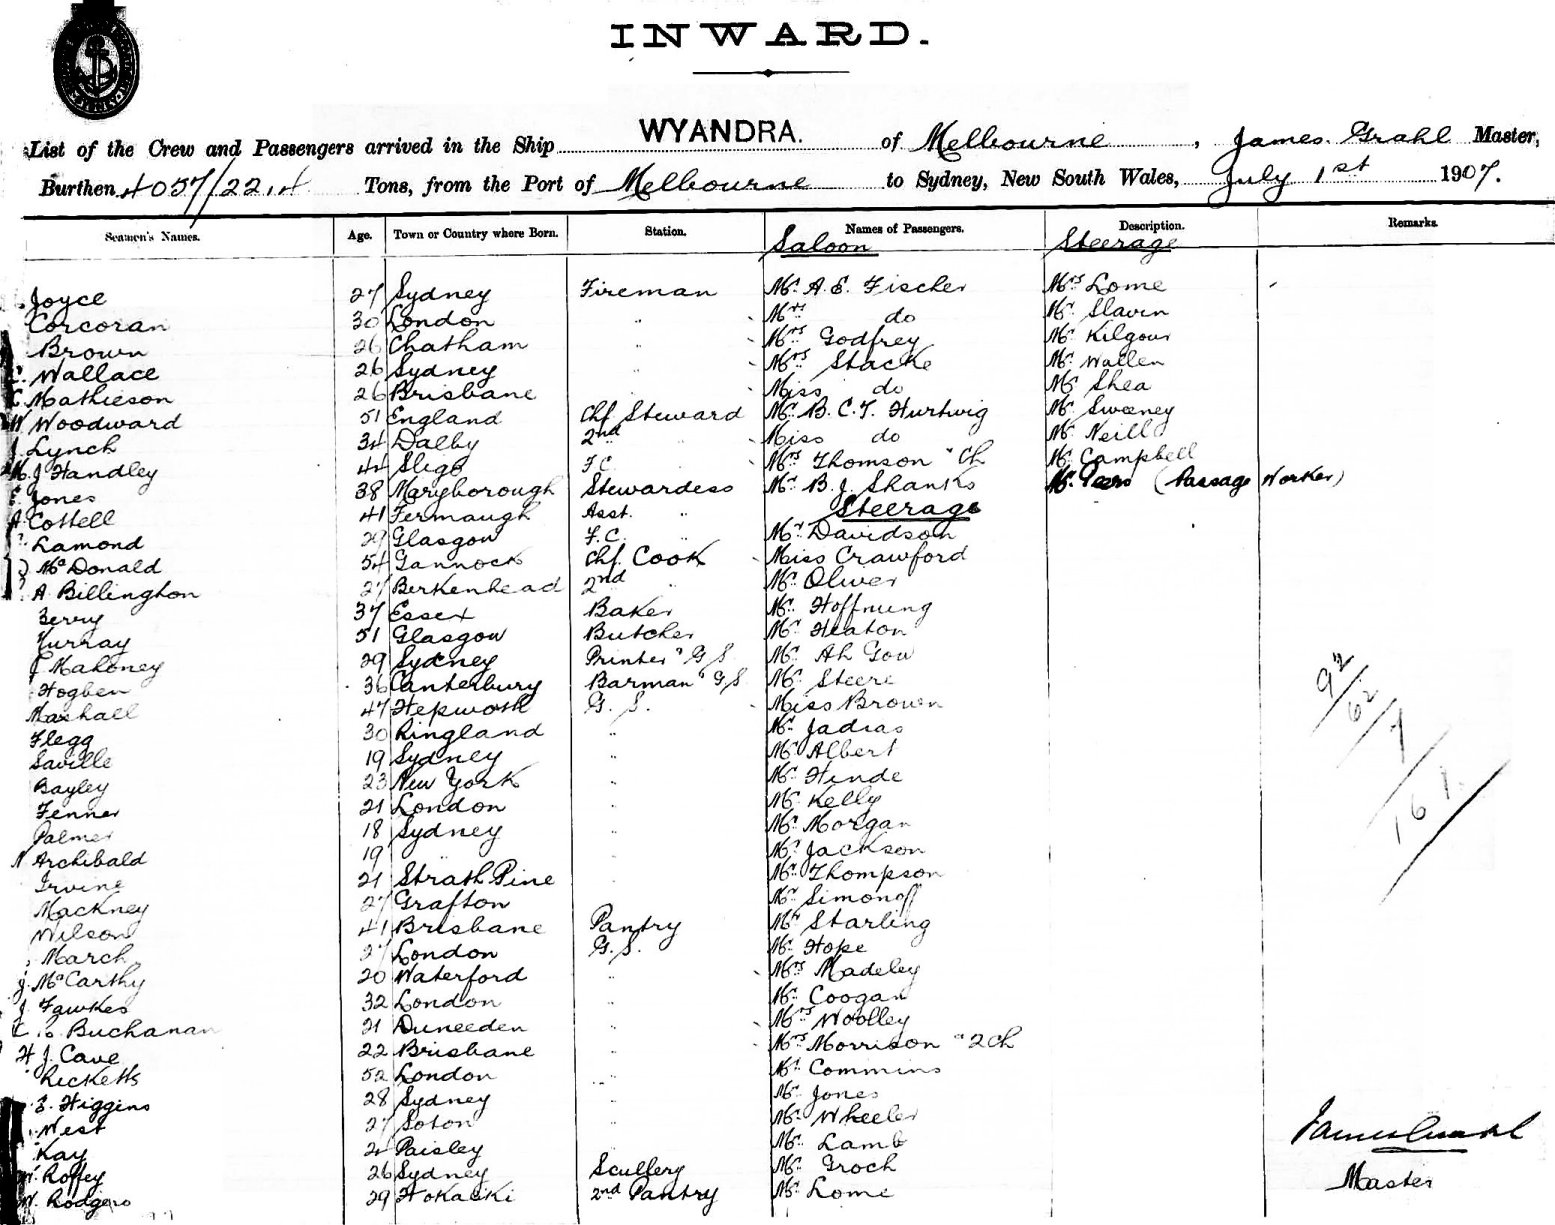 INWARD.
List of the Crew and Passengers arrived in the Ship WYANDRA. of Melbourne, James Grahl Master,
Burthen 4057/2214 Tons, from the Port of Melbourne to Sydney, New South Wales, July 1st 1907.
Seamen's Names. Age. Town or Country where Born. Station. Names of Passengers. Description. Remarks.
Saloon Steerage
Joyce 27 Sydney Fireman Mr. A. E. Fischer Mrs Lome
Corcoran 30 London " Mrs do Mr. Slavin
Brown 26 Chatham " Mrs Godfrey Mr. Kilgour
Wallace 26 Sydney " Mrs Stacke Mr. Wallen
Mathieson 26 Brisbane " Miss do Mr. Shea
W Woodward 51 England Chf Steward Mr. B. C. T. Hurtwig Mr. Sweeney
J. Lynch 34 Dalby 2nd " Miss do Mr. Neill
M. J Handley 44 Sligo F.C. " Mrs Thomson " Ch Mr. Campbell
E. Jones 38 Maryborough Stewardess Mr. B. J. Shanks Mr. Peers (Passage Worker)
A. Cottell 41 Fermaugh Asst. " Steerage
Lamond 29 Glasgow F.C. " Mr. Davidson
McDonald 54 Gannock Chf. Cook Miss Crawford
A Billinghon 27 Berkenhead 2nd " Mr. Oliver
Berry 37 Essex Baker Mr. Hoffnung
Murray 51 Glasgow Butcher Mr. Heaton
J Mahoney 29 Sydney Printer " G S Mr. Ah Gow
Hogben 36 Canterbury Barman " G S Mr. Steere
Marshall 47 Hepworth G. S. Miss Brown
Flegg 30 Ringland " Mr. Jadras
Saville 19 Sydney " Mr. Albert
Bayley 23 New York " Mr. Hinde
Fenner 21 London " Mr. Kelly
Palmer 18 Sydney " Mr. Morgan
N Archibald 19 " " Mr. Jackson
Irvine 21 Strath Pine " Mr. Thompson
Mackney 27 Grafton Mr. Simonoff
Wilson 41 Brisbane Pantry Mr. Starling
March 27 London G. S. Mr. Hope
J. McCarthy 20 Waterford " Mrs Madeley
J Fawkes 32 London " Mr. Coogan
Buchanan 21 Duneeden " Mrs Woolley
H J. Cave 22 Brisbane " Mrs Morrison " 2 Ch
Ricketts 52 London " Mr. Commins
E. Higgins 28 Sydney " Mr. Jones
West 27 Soton " Mr. Wheeler
Kay 21 Paisley " Mr. Lamb
W. Roffey 26 Sydney Scullery Mr. Groch
W. Rodgers 29 Hokaski 2nd Pantry Mr. Lome
92/62/7/161.
James Grahl
Master